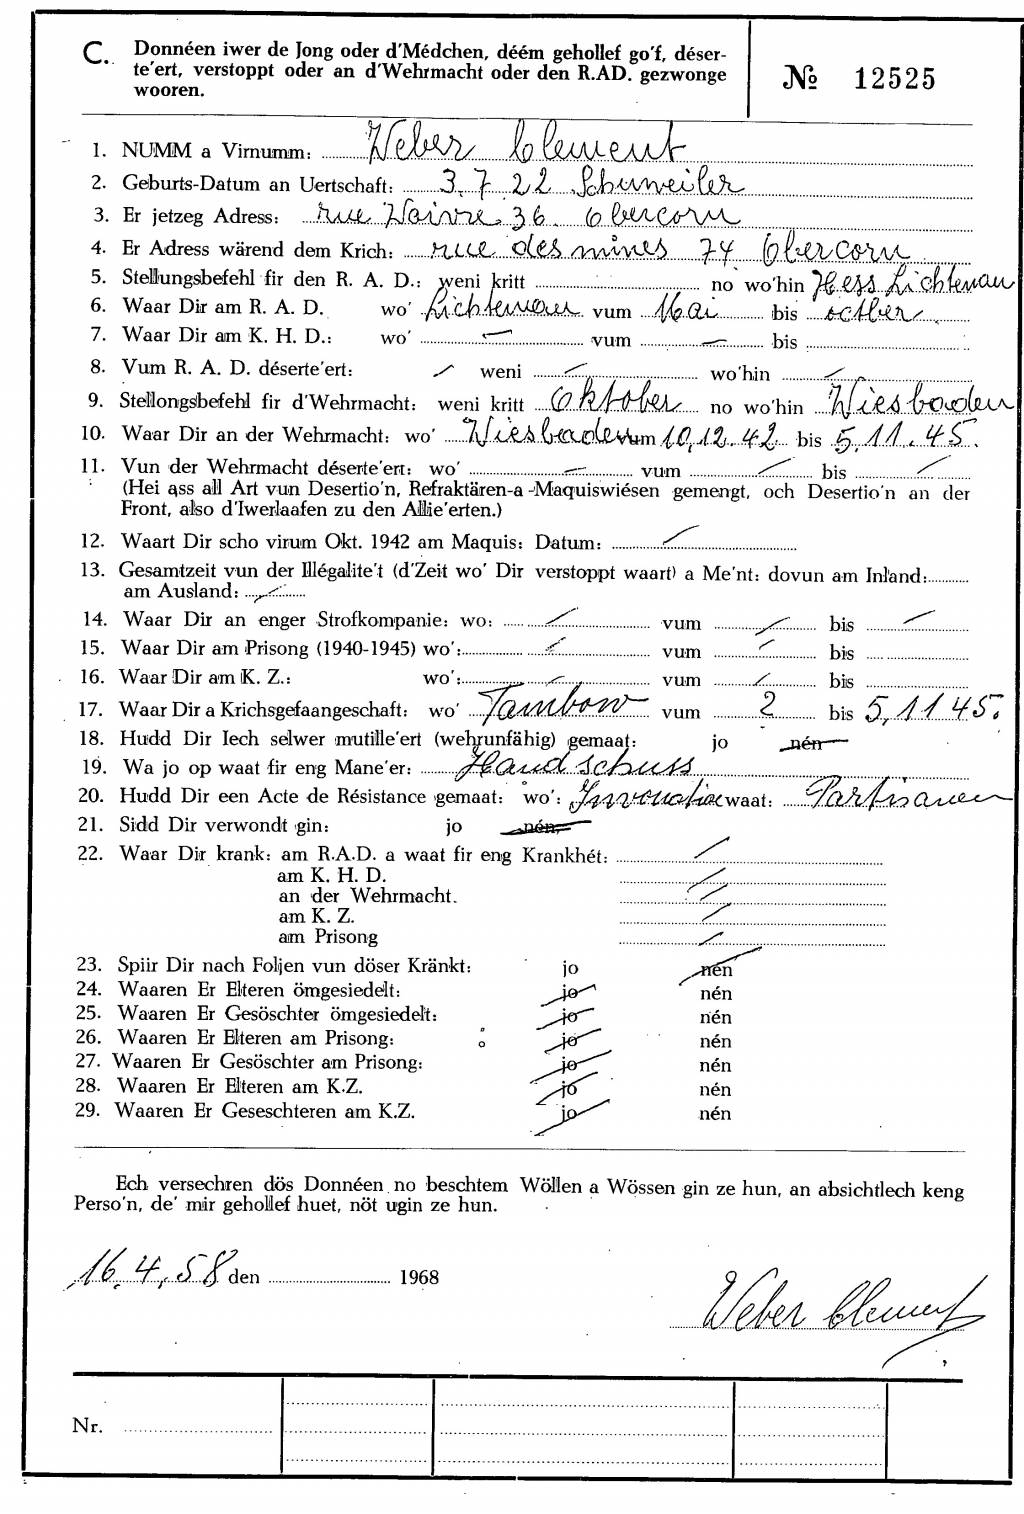 C. Donnéen iwer de Jong oder d'Médchen, déém gehollef go'f, déser-
te'ert, verstoppt oder an d'Wehrmacht oder den R.AD. gezwonge
wooren.
№ 12525
1. NUMM a Virnumm: Weber Clement
2. Geburts-Datum an Uertschaft: 3.7.22 Schuweiler
3. Er jetzeg Adress: rue Waivre 36. Obercorn
4. Er Adress wärend dem Krich: rue des mines 74 Obercorn
5. Stellungsbefehl fir den R. A. D.: weni kritt no wo'hin Hess Lichtenau
6. Waar Dir am R. A. D. wo' Lichtenau vum Mai bis octber
7. Waar Dir am K. H. D.: wo' — vum — bis
8. Vum R. A. D. déserte'ert: / weni / wo'hin /
9. Stellongsbefehl fir d'Wehrmacht: weni kritt Oktober no wo'hin Wiesbaden
10. Waar Dir an der Wehrmacht: wo' Wiesbaden vum 10.12.42 bis 5.11.45.
11. Vun der Wehrmacht déserte'ert: wo' — vum / bis /
(Hei ass all Art vun Desertio'n, Refraktären-a -Maquiswiésen gemengt, och Desertio'n an der
Front, also d'Iwerlaafen zu den Allie'erten.)
12. Waart Dir scho virum Okt. 1942 am Maquis: Datum: /
13. Gesamtzeit vun der Illégalite't (d'Zeit wo' Dir verstoppt waart) a Me'nt: dovun am Inland:
am Ausland: /
14. Waar Dir an enger Strofkompanie: wo: / vum / bis /
15. Waar Dir am Prisong (1940-1945) wo': / vum / bis
16. Waar Dir am K. Z.: wo': / vum / bis
17. Waar Dir a Krichsgefaangeschaft: wo' Tambow vum 2 bis 5.11 45.
18. Hudd Dir Iech selwer mutille'ert (wehrunfähig) gemaat: jo nén
19. Wa jo op waat fir eng Mane'er: Handschuss
20. Hudd Dir een Acte de Résistance gemaat: wo': waat: Partisanen
21. Sidd Dir verwondt gin: jo nén,
22. Waar Dir krank: am R.A.D. a waat fir eng Krankhét: /
am K. H. D. /
an der Wehrmacht. /
am K. Z. /
am Prisong /
23. Spiir Dir nach Foljen vun döser Kränkt: jo nén
24. Waaren Er Elteren ömgesiedelt: jo nén
25. Waaren Er Gesöschter ömgesiedelt: jo nén
26. Waaren Er Elteren am Prisong: jo nén
27. Waaren Er Gesöschter am Prisong: jo nén
28. Waaren Er Elteren am K.Z. jo nén
29. Waaren Er Geseschteren am K.Z. jo nén
Ech versechren dös Donnéen no beschtem Wöllen a Wössen gin ze hun, an absichtlech keng
Perso'n, de' mir gehollef huet, nöt ugin ze hun.
16.4.58 den 1968
Weber Clement
Nr.